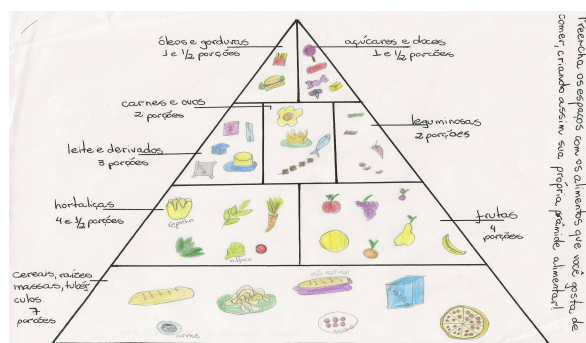 óleos e gorduras
1 e 1/2 porções
açúcares e doces
1 e 1/2 porções
carnes e ovos
2 porções
leguminosas
2 porções
leite e derivados
3 porções
hortaliças
4 e 1/2 porções
repolho
alface
frutas
4
porções
cereais, raízes
massas, tubér
culos.
7
porções
arroz
Preencha os espaços com os alimentos que você gosta de
comer, criando assim sua própria pirâmide alimentar!